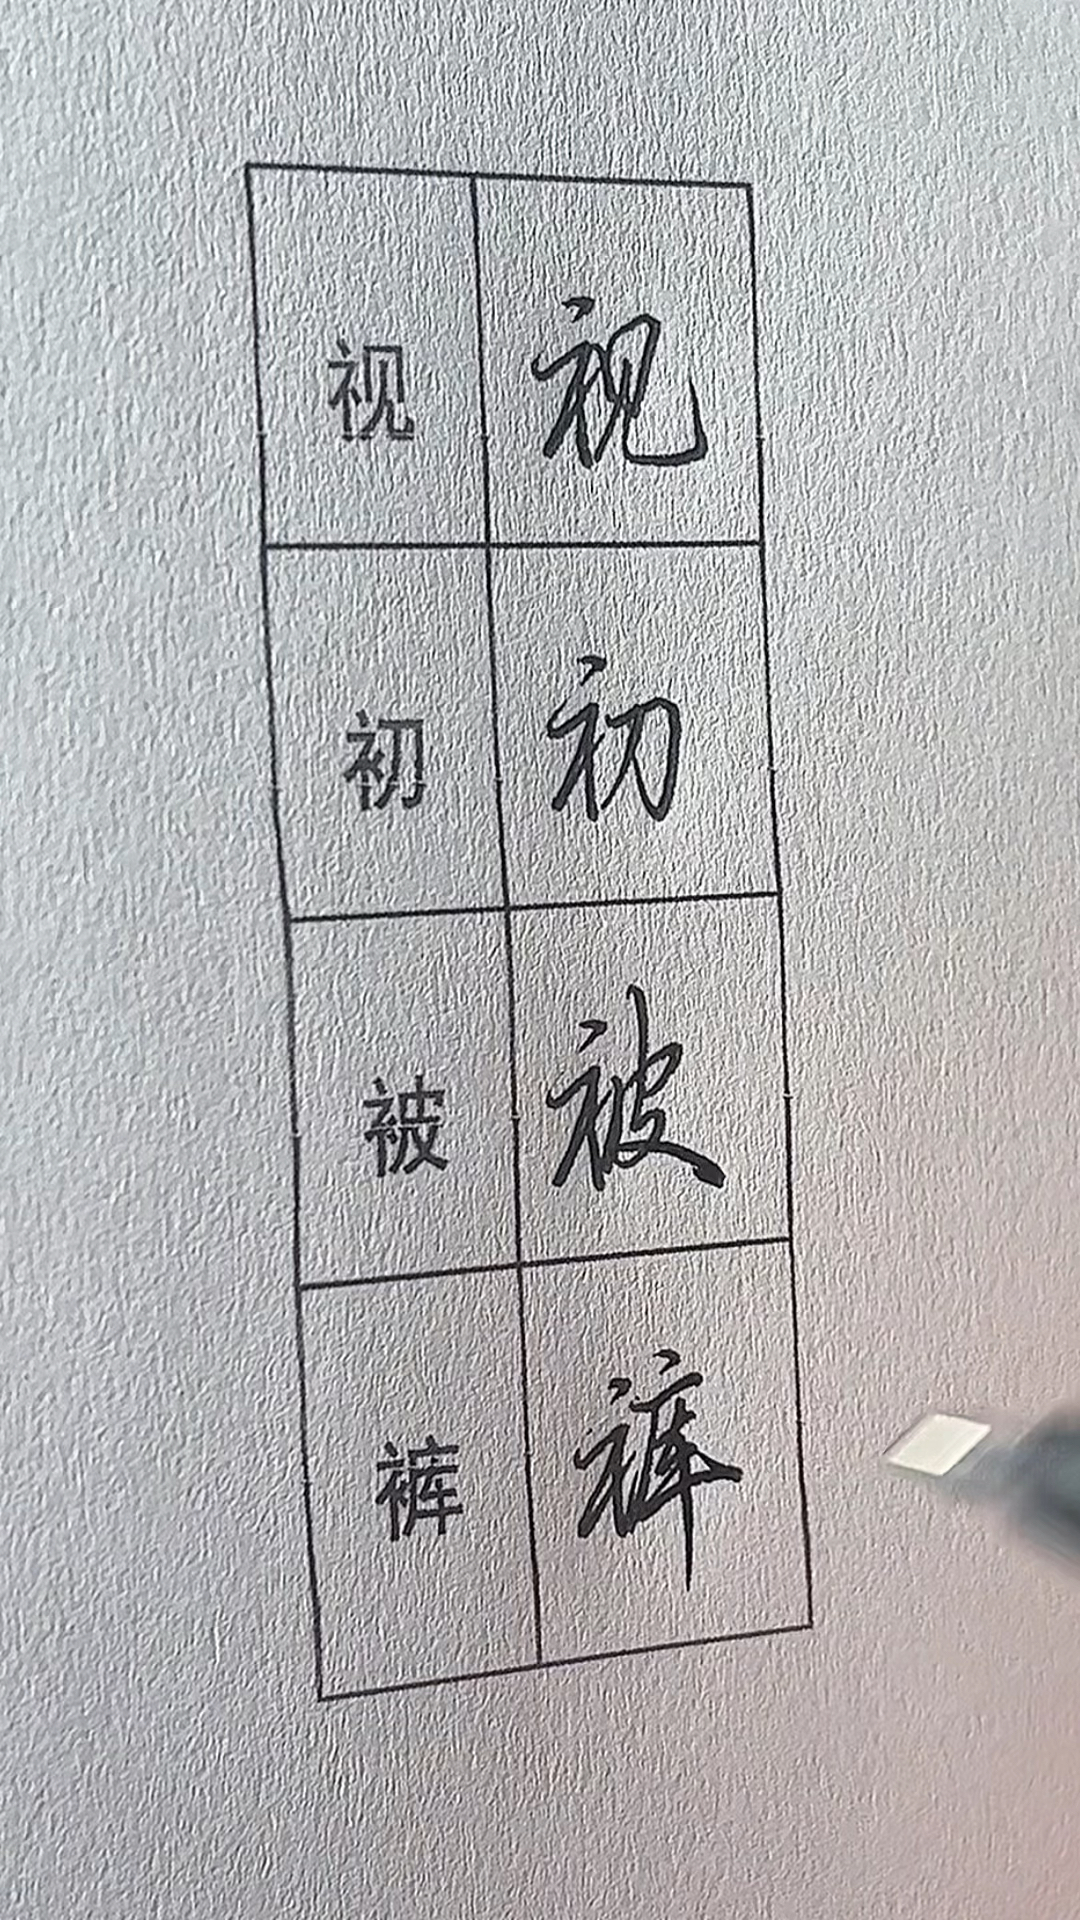 视 视
初 初
被 被
裤 裤